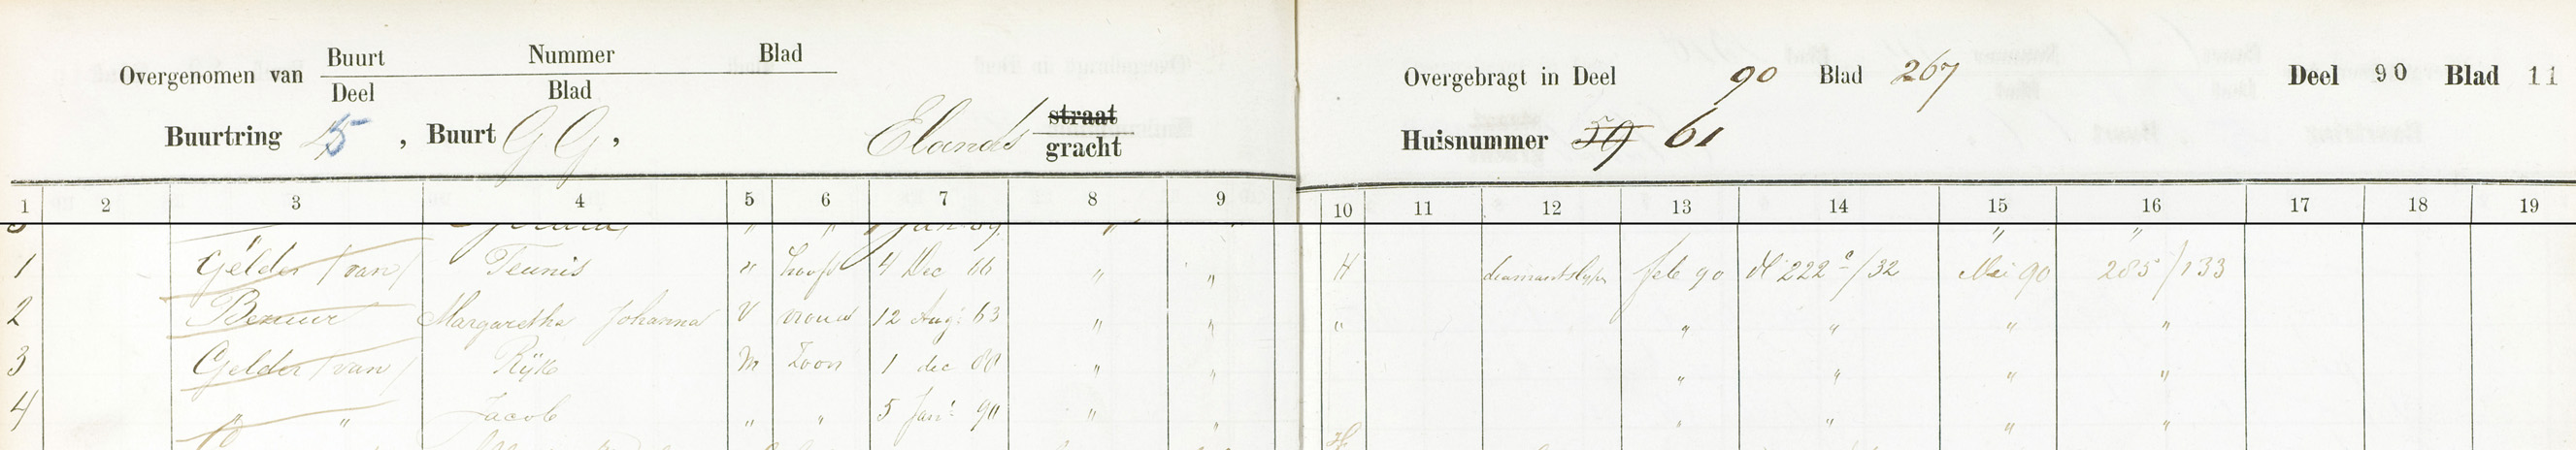 Overgenomen van Buurt Nummer Blad
Deel Blad
Buurtring 5, Buurt GG, Elands straat
gracht
Overgebragt in Deel 90 Blad 267 Deel 90 Blad 11
Huisnummer 59 61
1 2 3 4 5 6 7 8 9 10 11 12 13 14 15 16 17 18 19
1 Gelder (van) Teunis " hoofd 4 Dec 66 " " H diamantslyper feb 90 N 222 /32 Mei 90 285/133
2 Margaretha Johanna V vrouw 12 Aug: 63 " " " " " " "
3 Gelder (van) Rijk M Zoon 1 dec 88 " " " " " "
4 " " Jacob " " 5 Jan: 90 " " " " " "